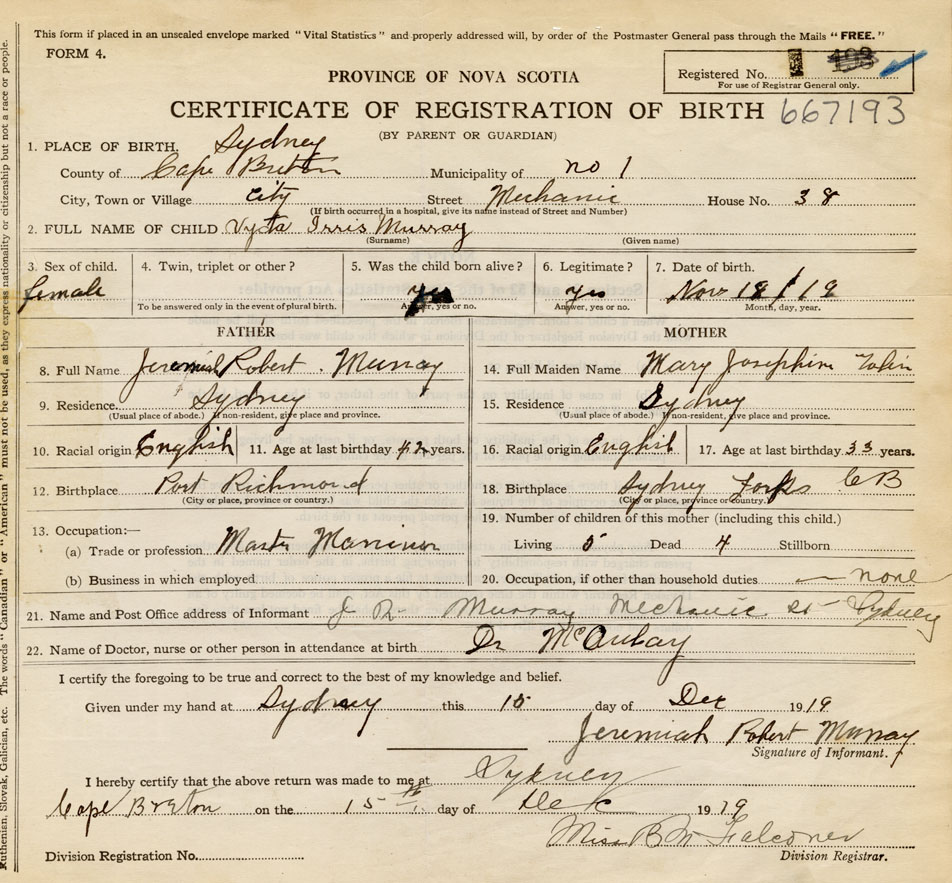 This form if placed in an unsealed envelope marked "Vital Statistics" and properly addressed will, by order of the Postmaster General pass through the Mails "FREE."
FORM 4.
Registered No. 193
For use of Registrar General only.
PROVINCE OF NOVA SCOTIA
CERTIFICATE OF REGISTRATION OF BIRTH 667193
(BY PARENT OR GUARDIAN)
1. PLACE OF BIRTH. Sydney
County of Cape Breton Municipality of no 1
City, Town or Village city Street Mechanic House No. 38
(If birth occurred in a hospital, give its name instead of Street and Number)
2. FULL NAME OF CHILD Vyta Irris Murray
(Surname) (Given name)
3. Sex of child. 4. Twin, triplet or other? 5. Was the child born alive? 6. Legitimate? 7. Date of birth.
female yes yes Nov 18 / 19
To be answered only in the event of plural birth. Answer, yes or no. Answer, yes or no. Month, day, year.
FATHER MOTHER
8. Full Name Jeremiah Robert Murray
14. Full Maiden Name Mary Josephin Tobin
9. Residence Sydney
(Usual place of abode.) If non-resident, give place and province.
15. Residence Sydney
(Usual place of abode.) If non-resident, give place and province.
10. Racial origin English 11. Age at last birthday 42 years.
16. Racial origin English 17. Age at last birthday 33 years.
12. Birthplace Port Richmond
(City or place, province or country.)
18. Birthplace Sydney Forks CB
(City or place, province or country.)
13. Occupation:—
(a) Trade or profession Master Mariner
(b) Business in which employed
19. Number of children of this mother (including this child.)
Living 5 Dead 4 Stillborn
20. Occupation, if other than household duties — none
21. Name and Post Office address of Informant J R Murray Mechanic st Sydney
22. Name of Doctor, nurse or other person in attendance at birth Dr
I certify the foregoing to be true and correct to the best of my knowledge and belief.
Given under my hand at Sydney this 15 day of Dec 1919
Jeremiah Robert Murray
Signature of Informant.
I hereby certify that the above return was made to me at Sydney
Cape Breton on the 15th day of Dec 1919
Miss B M Falconer
Division Registration No. Division Registrar.
Ruthenian, Slovak, Galician, etc. The words "Canadian" or "American" must not be used, as they express nationality or citizenship but not a race or people.